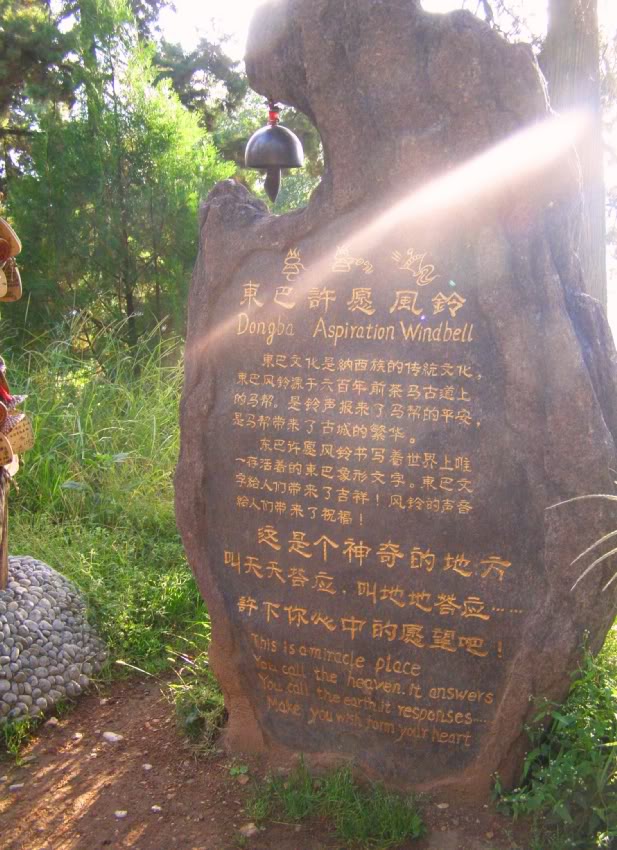 東巴許愿风鈴
Dongba Aspiration Windbell
東巴文化是纳西族的传統文化，
東巴风鈴源于六百年前茶马古道上
的马帮。是铃声报来了马帮的平安，
是马帮带来了古城的繁华。
东巴许愿风铃书写着世界上唯
一存活着的東巴象形文字。東巴文
字給人们带来了吉祥！风铃的声音
給人们带来了祝福！
这是个神奇的地方
叫天天答应．叫地地答应……
許下你心中的愿望吧！
This is a miracle place
You call the heaven.it answers
You call the earth.it responses....
Make you wish form your heart